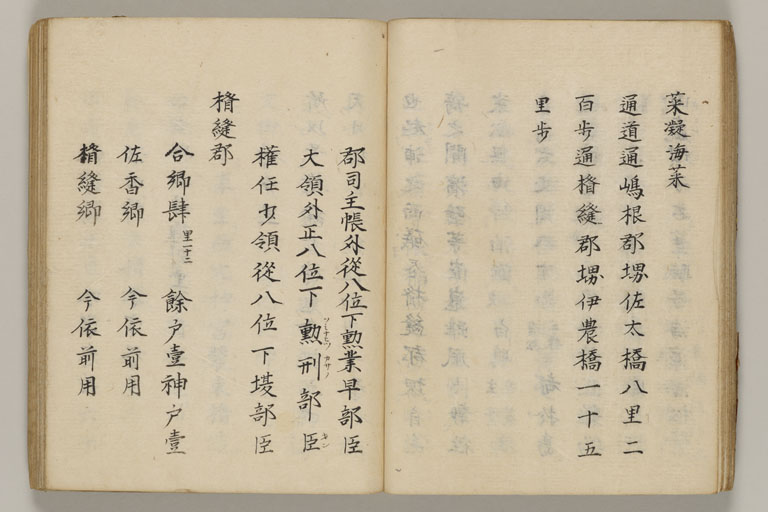 菜凝海菜
通道通嶋根郡堺佐太橋八里二
百歩通楯縫郡堺伊農橋一十五
里歩
郡司主帳外從八位下勲業早部臣
大領外正八位下勲刑部臣
權任少領從八位下蝮部臣
楯縫郡
合郷肆里一十二餘戸壹神戸壹
佐香郷 今依前用
楯縫郷 今依前用